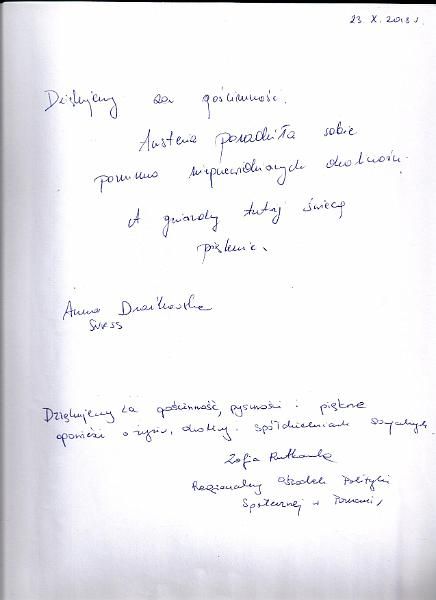 23. X. 2013 r.
Dziękujemy za gościnność.
Austeria poradziła sobie
pomimo nieprzewidzianych okoliczności.
A gwiazdy tutaj świecą
pięknie.
Anna
Dziękujemy za gościnność, pyszności i piękne
opowieści o życiu, okolicy i spółdzielniach socjalnych
Zofia Rutkowska
Regionalny Ośrodek Polityki
Społecznej w Poznaniu